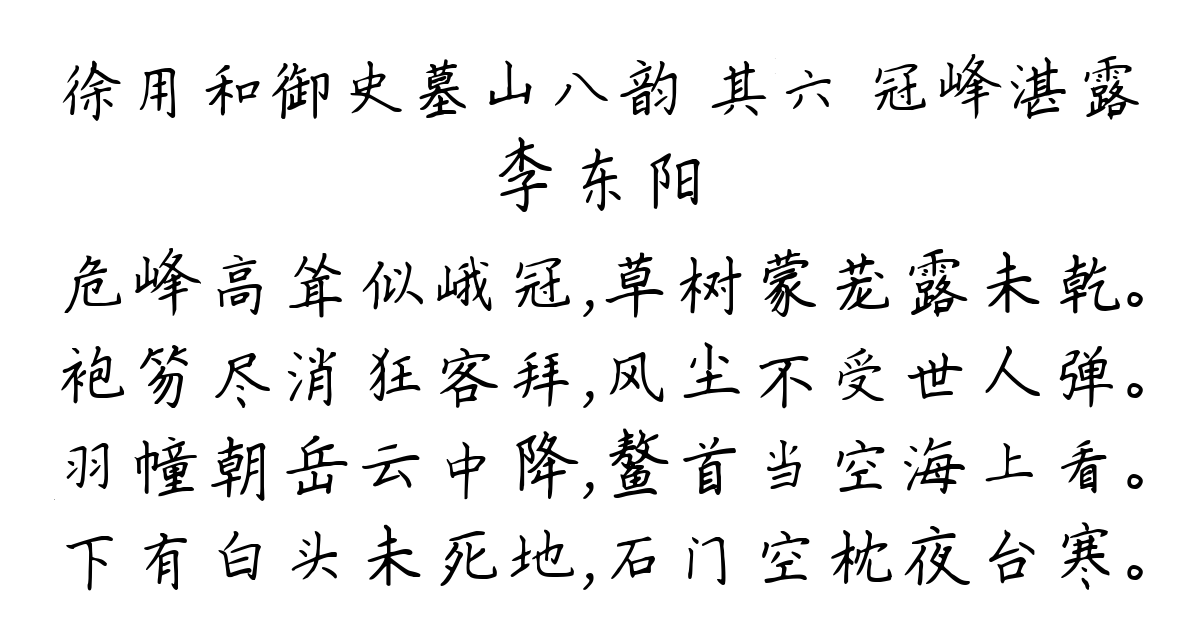 徐用和御史墓山八韵 其六 冠峰湛露
李东阳
危峰高耸似峨冠,草树蒙茏露未乾。
袍笏尽消狂客拜,风尘不受世人弹。
羽幢朝岳云中降,鳌首当空海上看。
下有白头未死地,石门空枕夜台寒。